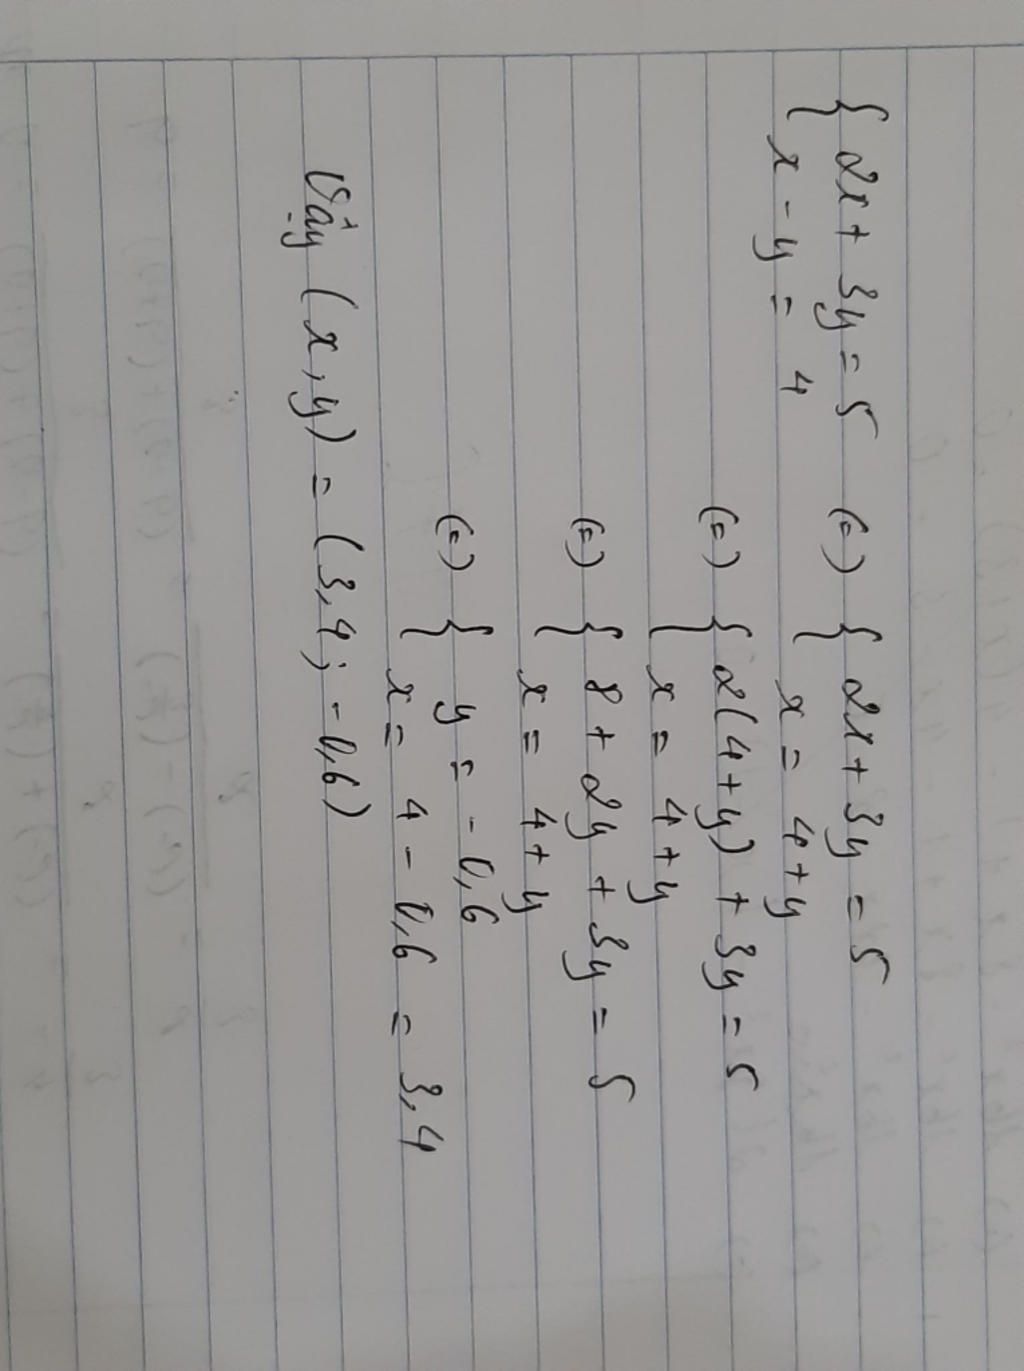 { 2x + 3y = 5 (=) { 2x + 3y = 5
x - y = 4 x = 4 + y
(=) { 2(4+y) + 3y = 5
x = 4 + y
(=) { 8 + 2y + 3y = 5
x = 4 + y
(=) { y = - 0,6
x = 4 - 0,6 = 3,4
Vậy (x,y) = (3,4; -0,6)